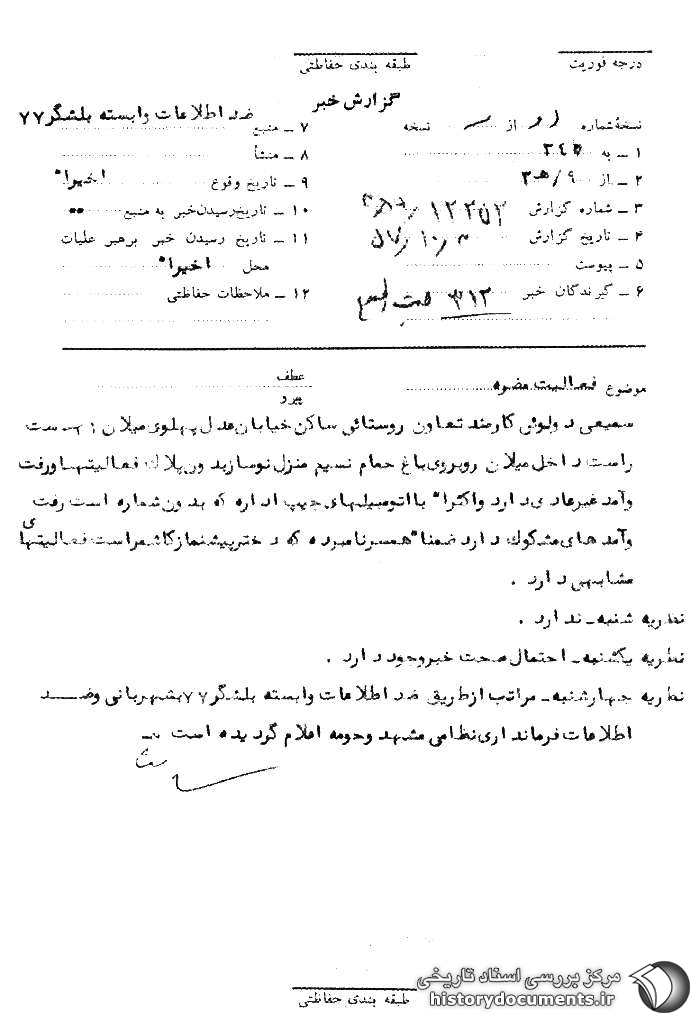 درجه فوریت
طبقه بندی حفاظتی
گزارش خبر
نسخهٔ شماره از نسخه
۱ ــ به ۳٤۵
۲ ــ از ۹/هـ۳
۳ ــ شماره گزارش ۱۲۲۵۲
۴ ــ تاریخ گزارش
۵ ــ پیوست
۶ ــ گیرندگان خبر ۳۱۲
ضد اطلاعات وابسته بلشگر۷۷
۷ ــ منبع
۸ ــ منشأ
۹ ــ تاریخ وقوع اخیرا"
۱۰ ــ تاریخ رسیدن خبر به منبع
۱۱ ــ تاریخ رسیدن خبر برهبر عملیات
محل اخیرا"
۱۲ ــ ملاحظات حفاظتی
موضوع فعالیت مضره
عطف
پیرو
سمیعی دولوئی کارمند تعاون روستائی ساکن خیابان عدل پهلوی میلان ۱ سمت
راست داخل میلان روبروی باغ حمام نسیم منزل نوساز بدون پلاك فعالیتها ورفت
وآمد غیرعادی دارد واکثرا" با اتومبیلهای جیپ اداره که بدون شماره است رفت
وآمدهای مشکوك دارد ضمنا" همسرنامبرده که دخترپیشنماز کاشمراست فعالیتهای
مشابهی دارد .
نظریه شنبه ـ ندارد .
نظریه یکشنبه ـ احتمال صحت خبر وجود دارد .
نظریه چهارشنبه ـ مراتب ازطریق ضد اطلاعات وابسته بلشگر۷۷ بشهربانی وضد
اطلاعات فرمانداری نظامی مشهد وحومه اعلام گردیده است
طبقه بندی حفاظتی
مرکز بررسی اسناد تاریخی
historydocuments.ir